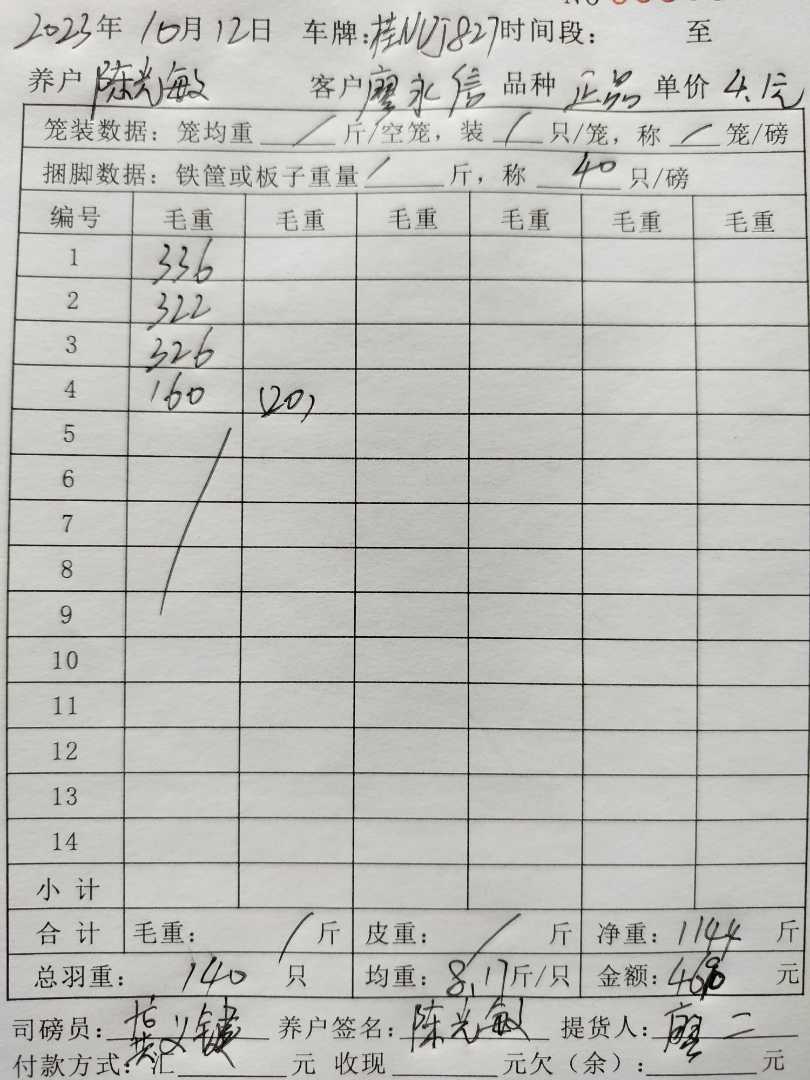 2023年 10月 12日 车牌:桂NUJ827时间段: 至
养户 陈光敏 客户廖永信 品种 正品 单价 4.1元
笼装数据: 笼均重 / 斤/空笼, 装 / 只/笼, 称 / 笼/磅
捆脚数据: 铁筐或板子重量 / 斤, 称 40 只/磅
编号 毛重 毛重 毛重 毛重 毛重 毛重
1 336
2 322
3 326
4 160 (20)
5
6
7
8
9
10
11
12
13
14
小计
合计 毛重: / 斤 皮重: / 斤 净重: 1144 斤
总羽重: 140 只 均重: 8.17斤/只 金额: 4690 元
司磅员: 养户签名: 陈光敏 提货人: 廖二
付款方式: 汇 元 收现 元欠(余): 元